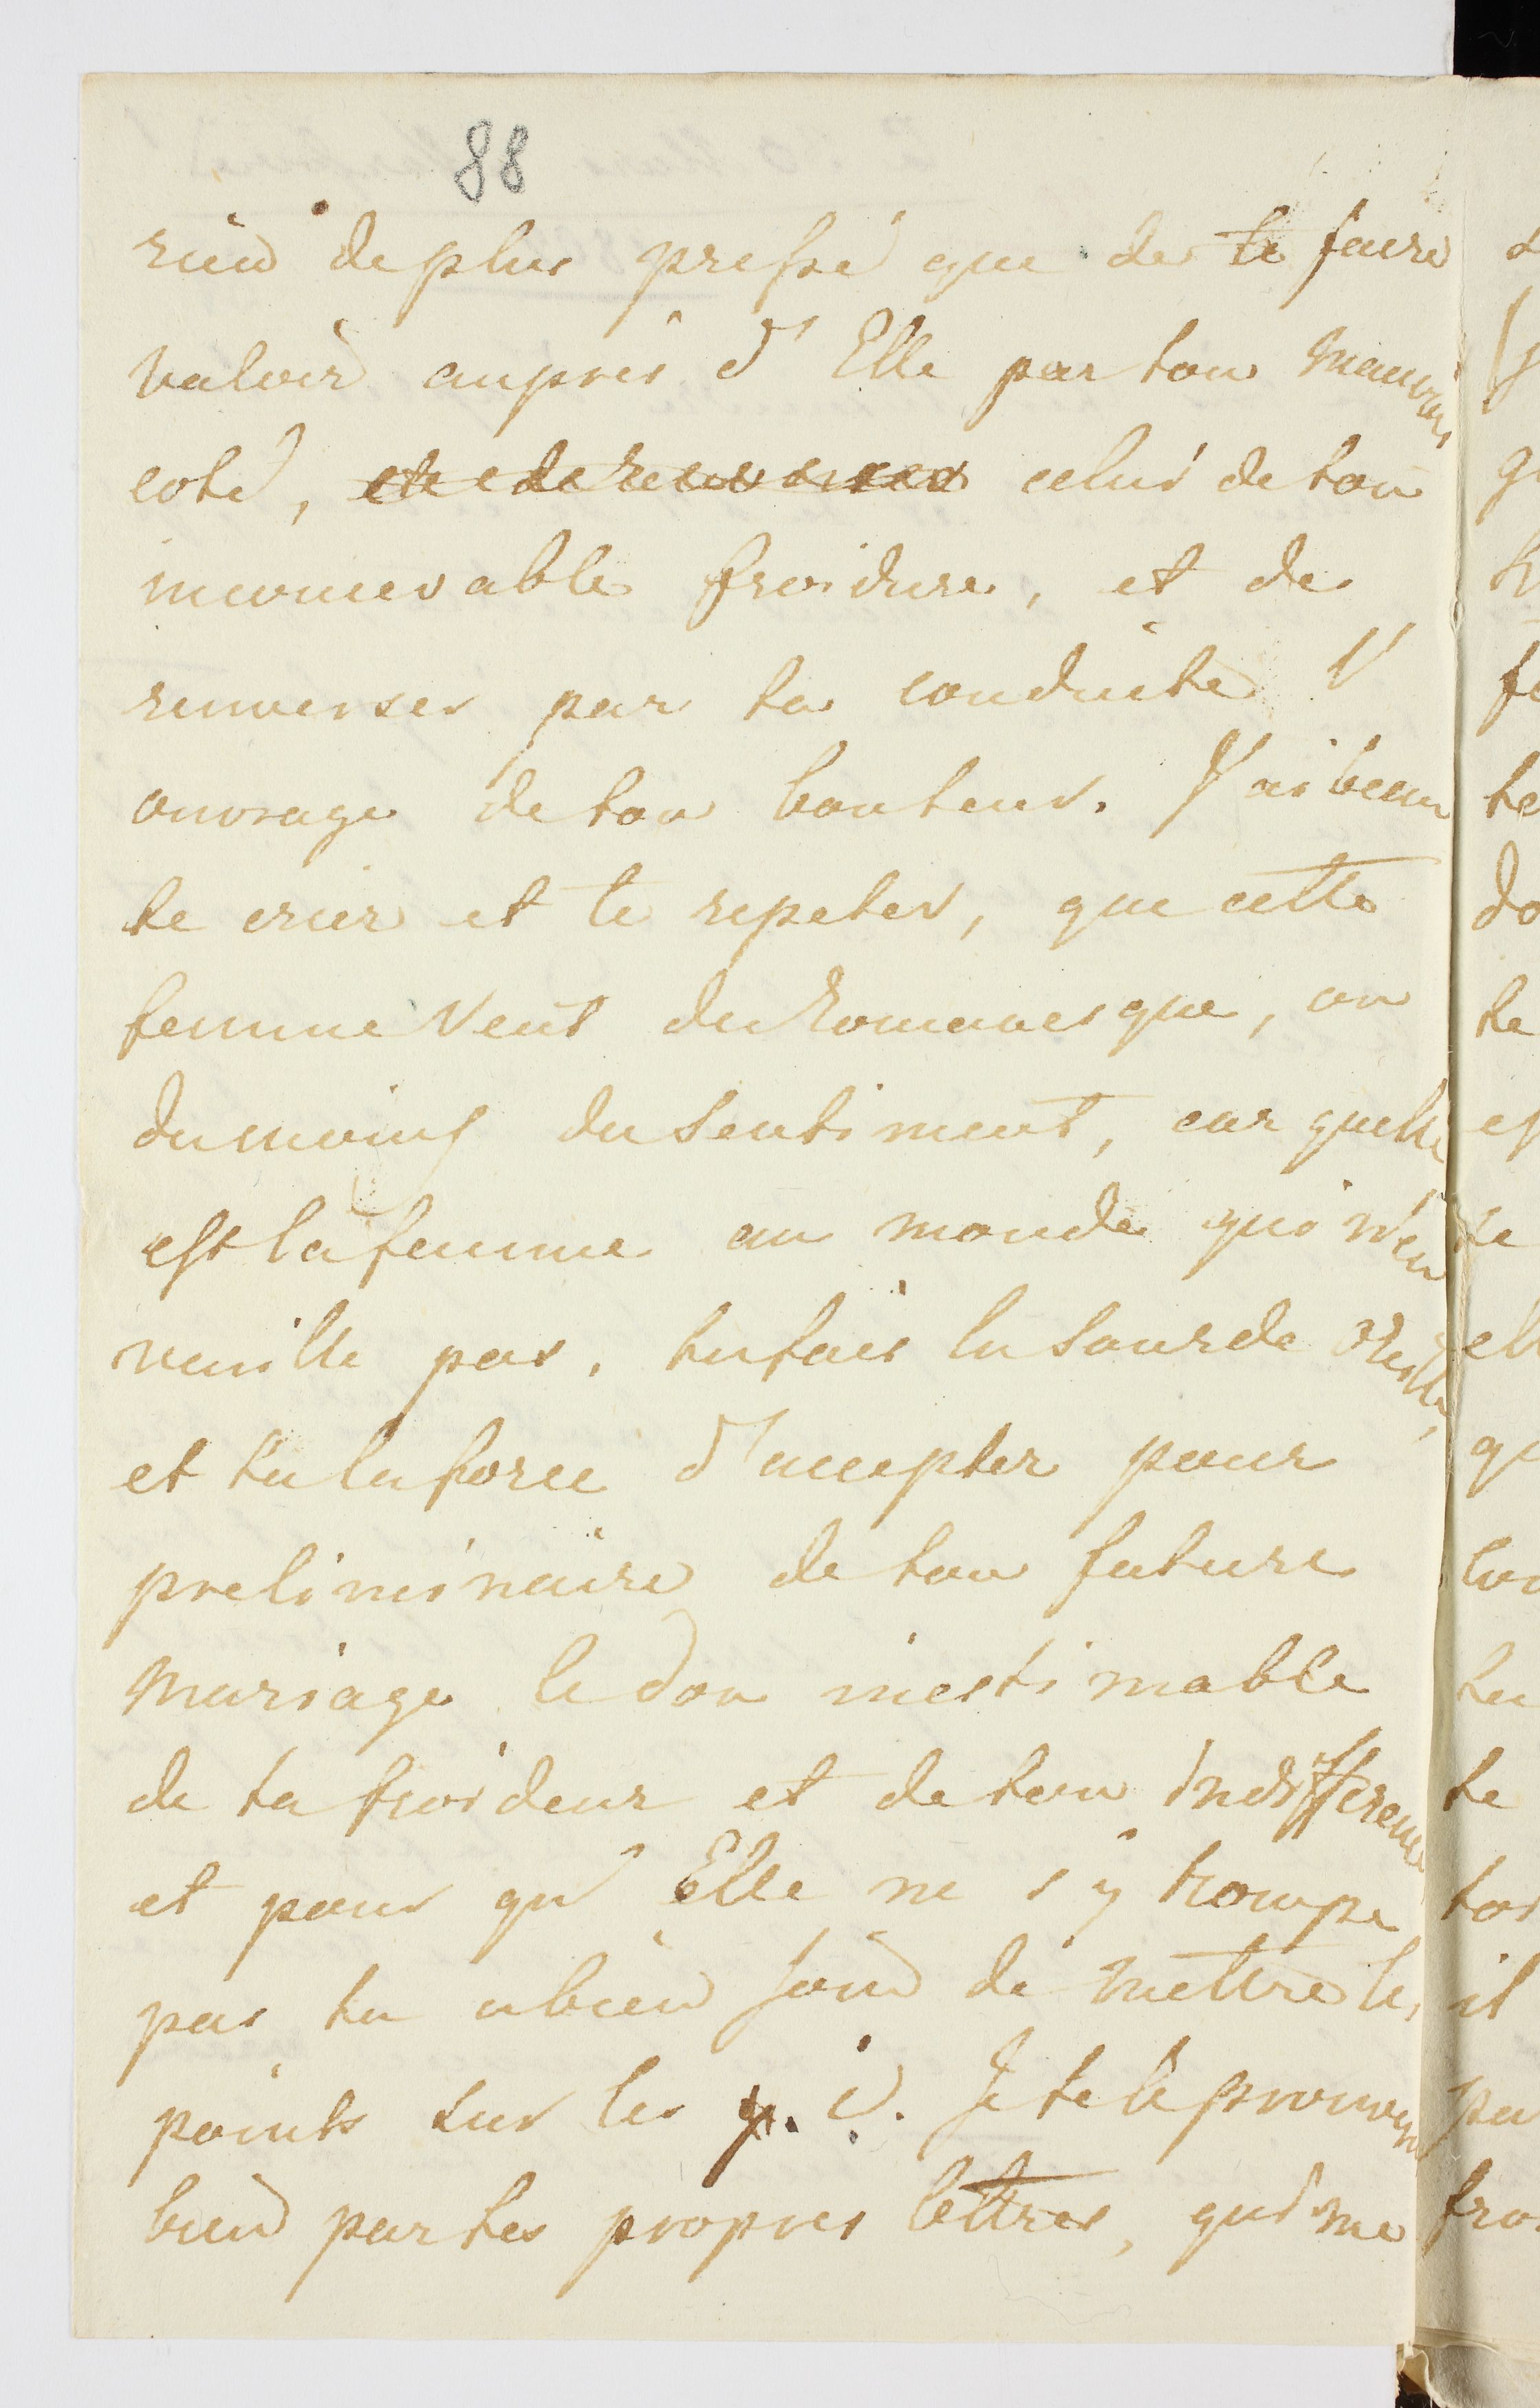 88
rien de plus pressé que de te faire
valoir aupres d' Elle par ton mauvais
coté, celui de ton
inconcevable froidure, et de
renverser par ta conduite l'
ouvrage de ton bonheur. J'ai beau
te crier et te repeter, que cette
femme veut du Romanesque, ou
du moins du sentiment, car quelle
est la femme au monde qui n'en
veuille pas, tu fais la sourde oreille,
et tu la force d'accepter pour
preliminaire de ton future
mariage le don inestimable
de ta froideur et de ton indifference
et pour qu' Elle ne s'y trompe
pas tu a bien soin de mettre les
points sur les i. Je te le prouverai
bien par tes propres lettres, qui me